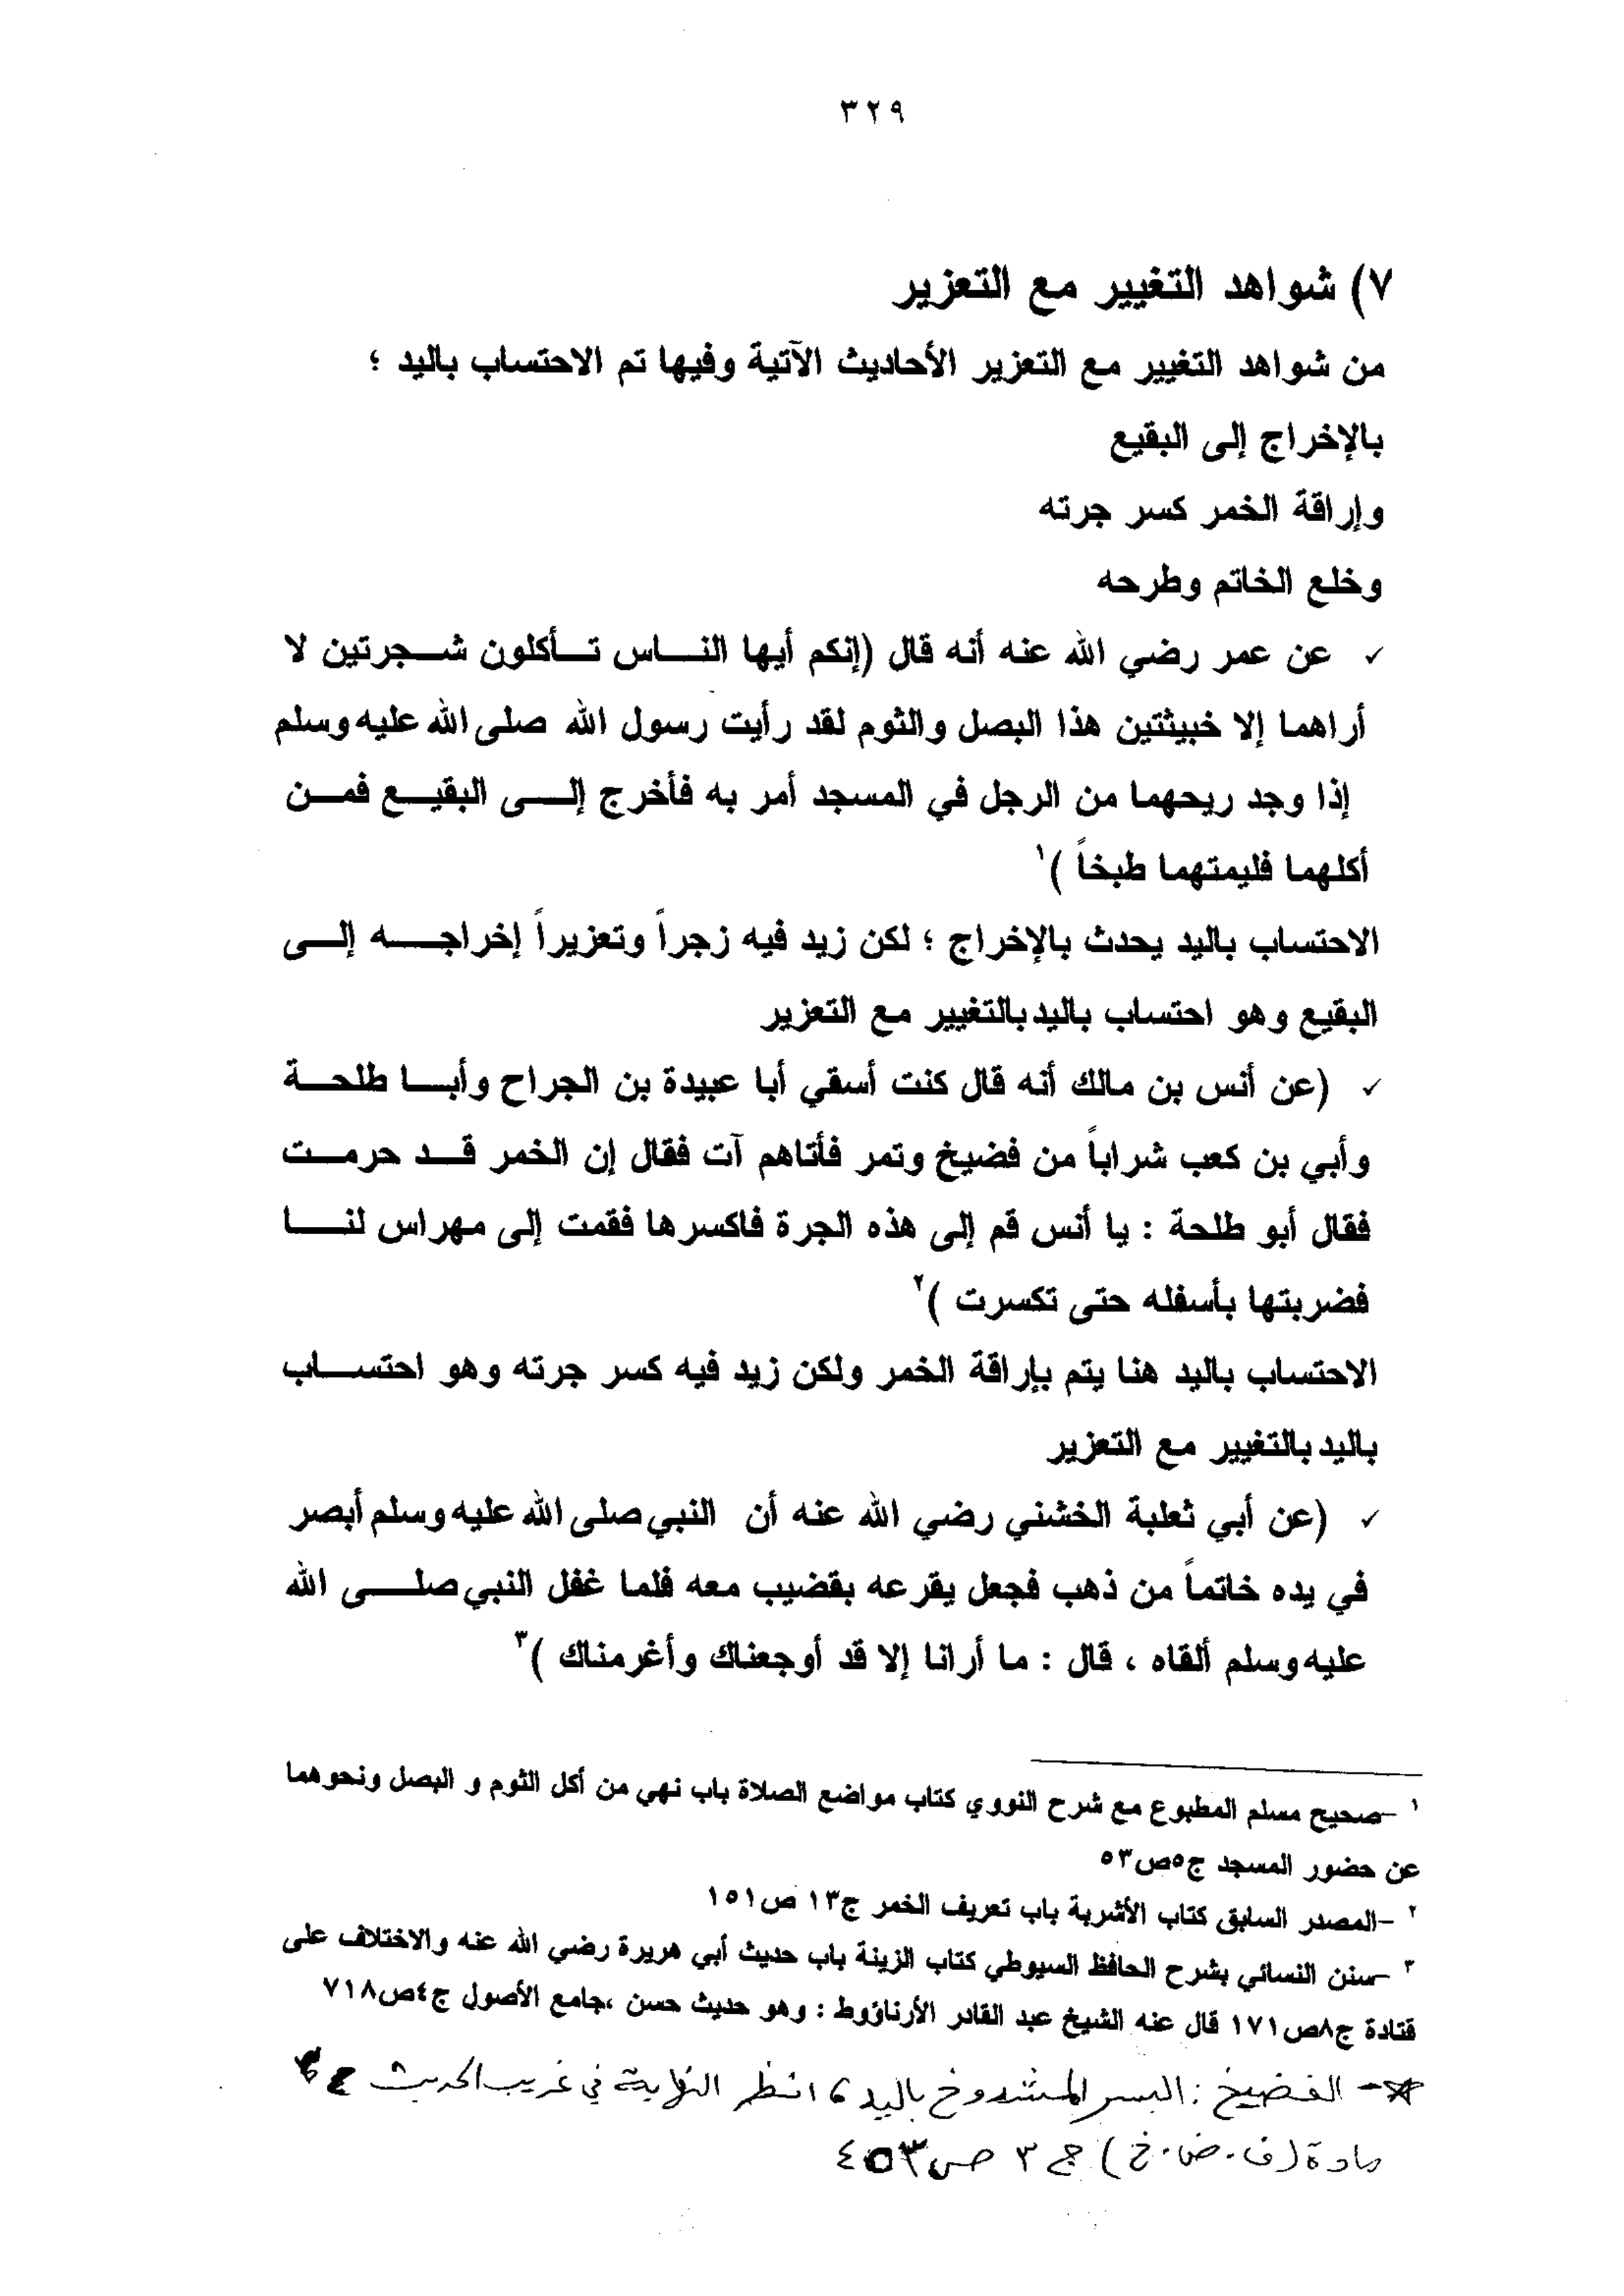 ٣٢٩
٧) شواهد التغيير مع التعزير
من شواهد التغيير مع التعزير الأحاديث الآتية وفيها تم الاحتساب باليد ؛
بالإخراج إلى البقيع
وإراقة الخمر كسر جرته
وخلع الخاتم وطرحه
✓ عن عمر رضي الله عنه أنه قال (إنكم أيها النـاس تـأكلون شـجرتين لا
أراهما إلا خبيثتين هذا البصل والثوم لقد رأيت رسول الله صلى الله عليه وسلم
إذا وجد ريحهما من الرجل في المسجد أمر به فأخرج إلـى البقيـع فمـن
أكلهما فليمتهما طبخاً )١
الاحتساب باليد يحدث بالإخراج ؛ لكن زيد فيه زجراً وتعزيراً إخراجـه إلـى
البقيع وهو احتساب باليد بالتغيير مع التعزير
✓ (عن أنس بن مالك أنه قال كنت أسقي أبا عبيدة بن الجراح وأبـا طلحـة
وأبي بن كعب شراباً من فضيخ وتمر فأتاهم آت فقال إن الخمر قـد حرمـت
فقال أبو طلحة : يا أنس قم إلى هذه الجرة فاكسرها فقمت إلى مهراس لنـا
فضربتها بأسفله حتى تكسرت )٢
الاحتساب باليد هنا يتم بإراقة الخمر ولكن زيد فيه كسر جرته وهو احتسـاب
باليد بالتغيير مع التعزير
✓ (عن أبي ثعلبة الخشني رضي الله عنه أن النبي صلى الله عليه وسلم أبصر
في يده خاتماً من ذهب فجعل يقرعه بقضيب معه فلما غفل النبي صلـى الله
عليه وسلم ألقاه ، قال : ما أرانا إلا قد أوجعناك وأغرمناك )٣
١ -صحيح مسلم المطبوع مع شرح النووي كتاب مواضع الصلاة باب نهي من أكل الثوم و البصل ونحوهما
عن حضور المسجد ج٥ص٥٣
٢ -المصدر السابق كتاب الأشربة باب تعريف الخمر ج١٣ ص١٥١
٣ -سنن النسائي بشرح الحافظ السيوطي كتاب الزينة باب حديث أبي هريرة رضي الله عنه والاختلاف على
قتادة ج٨ص١٧١ قال عنه الشيخ عبد القادر الأرناؤوط : وهو حديث حسن ،جامع الأصول ج٤ص٧١٨
*- الفضيخ : البسر المشدوخ باليد ، انظر النهاية في غريب الحديث
مادة (ف . ض . خ) ج ٣ ص ٤٥٣